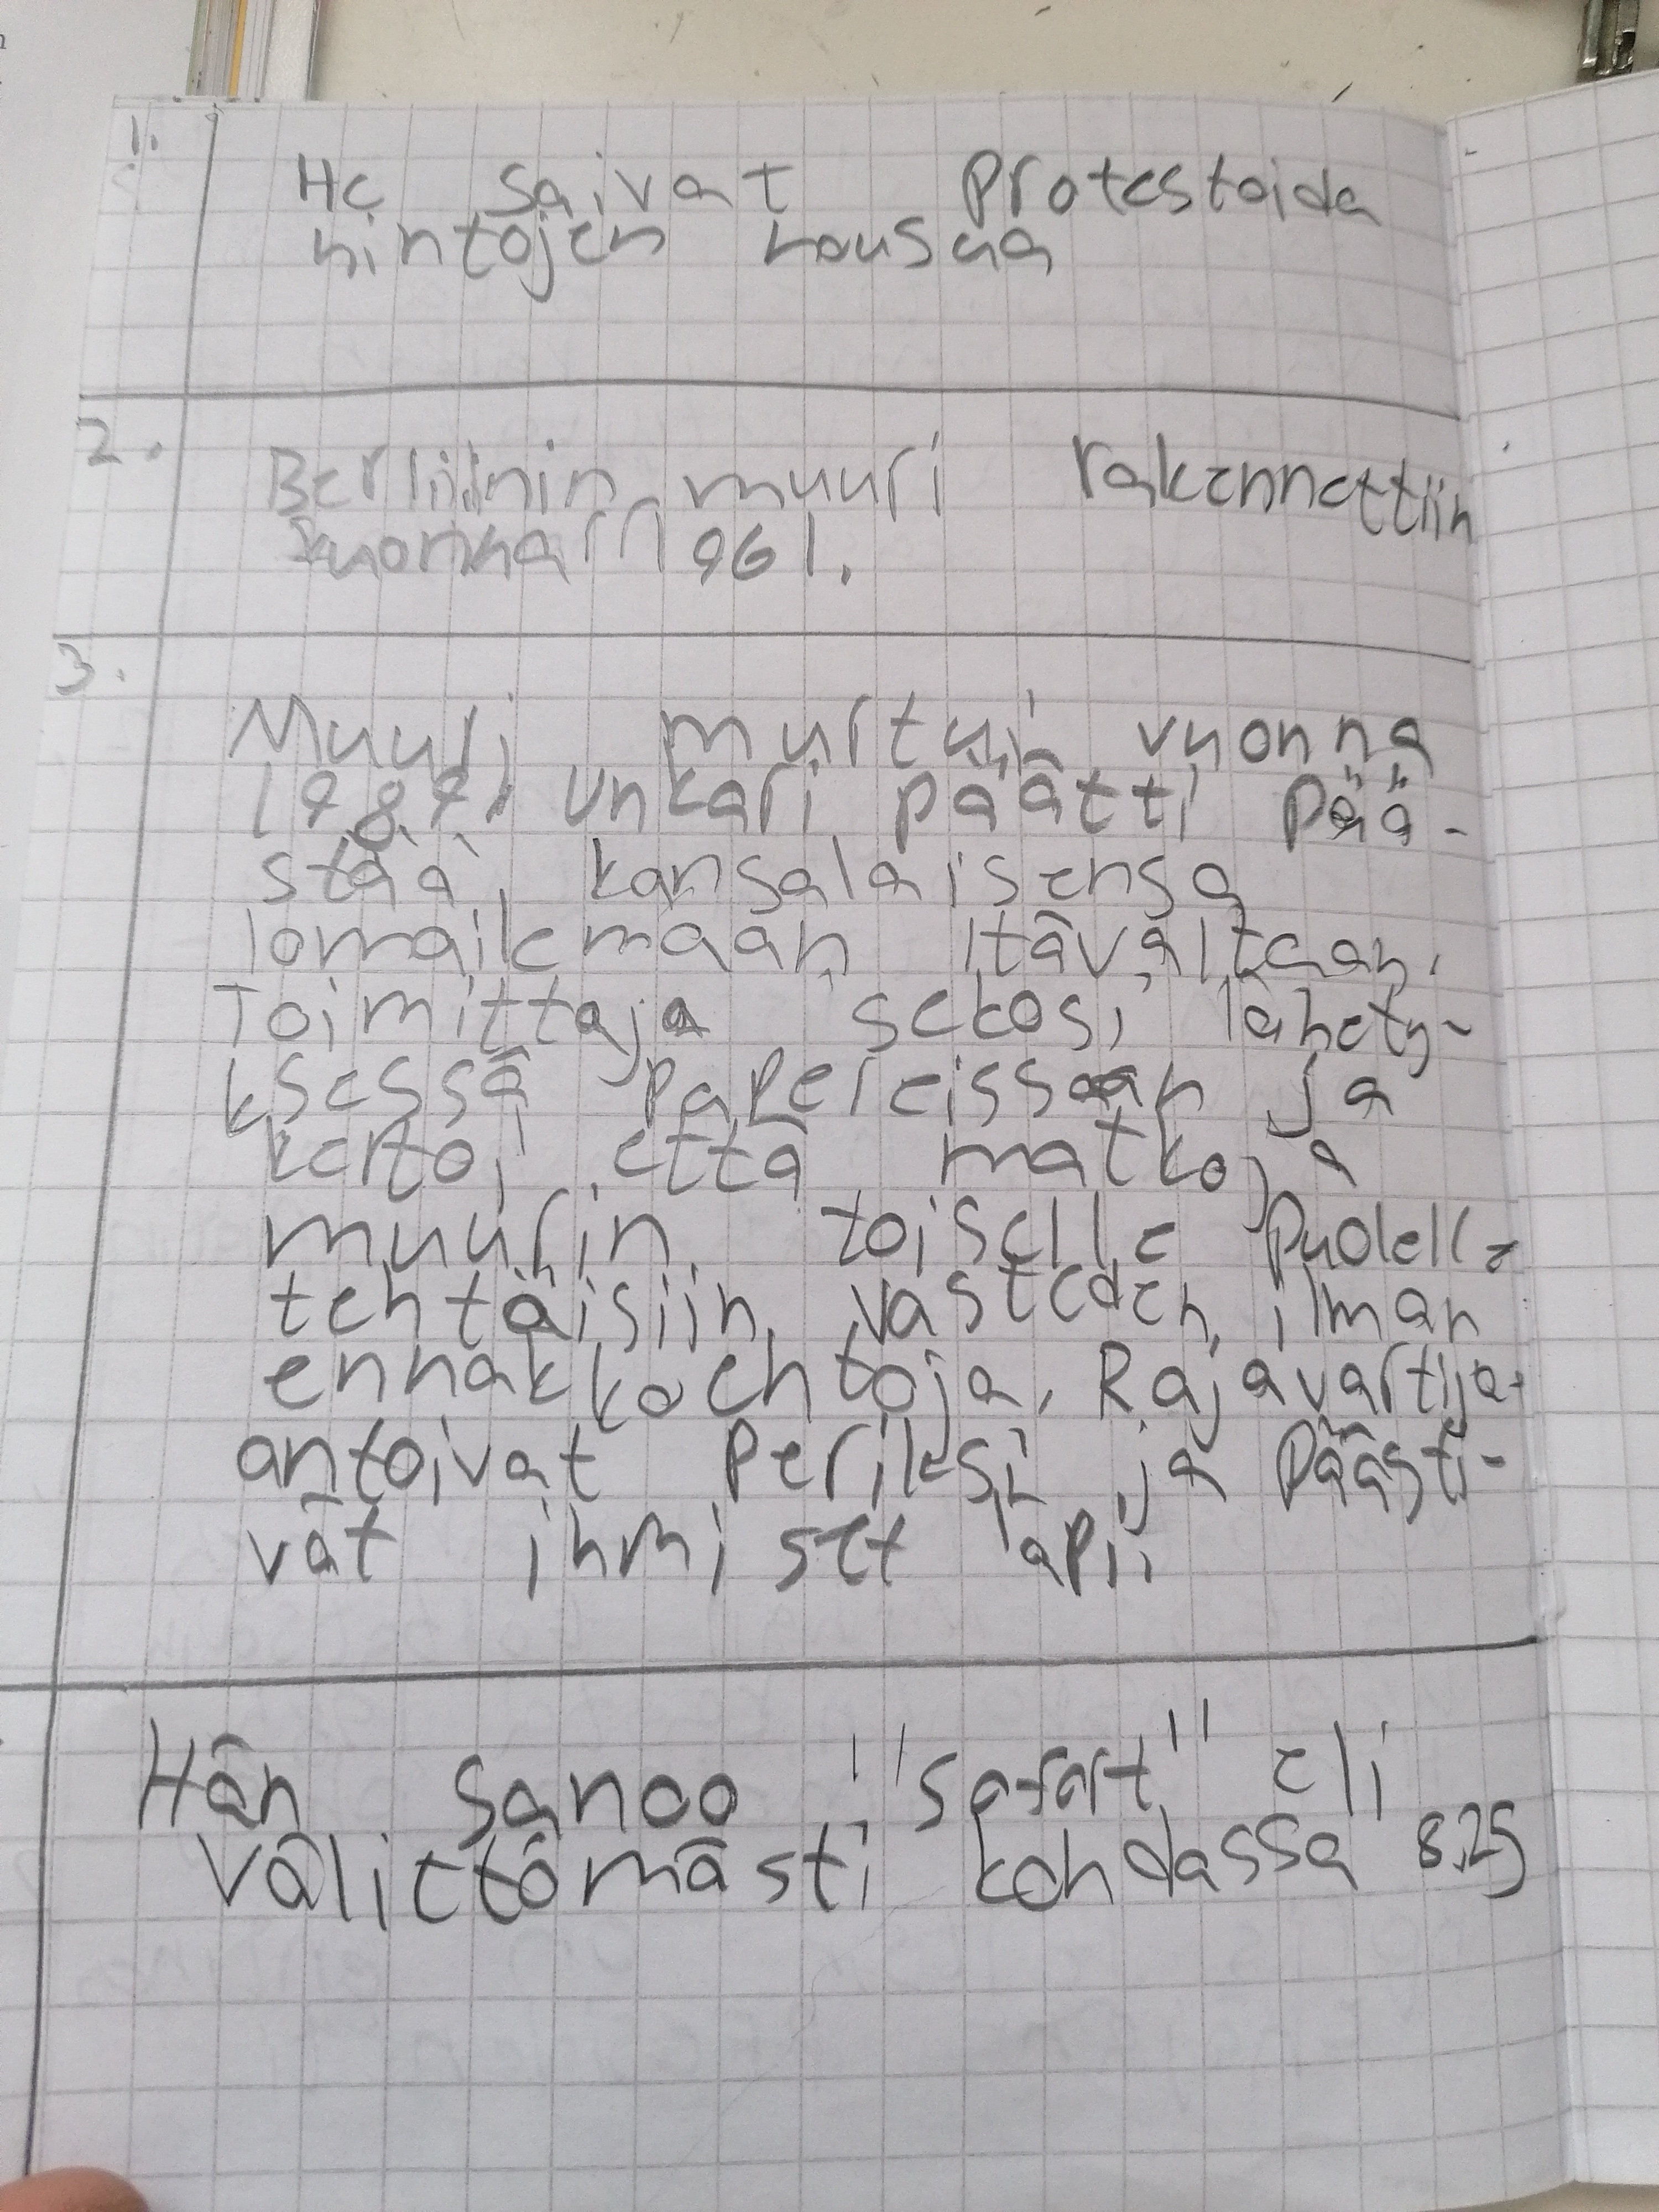 1.
He saivat protestoida
hintojen nousua
2.
Berliinin muuri rakennettiin
vuonna 1961.
3.
Muuri murtui vuonna
1989. Unkari päätti pää-
stää kansalaisensa
lomailemaan Itävaltaan.
Toimittaja sekosi lähety-
ksessä papereissaan ja
kertoi että matkoja
muurin toiselle puolelle
tehtäisiin vastedes ilman
ennakkoehtoja. Rajavartija
antoivat periksi ja päästi-
vät ihmiset läpi.
Hän sanoo "sofort" eli
välittömästi kohdassa 8.25